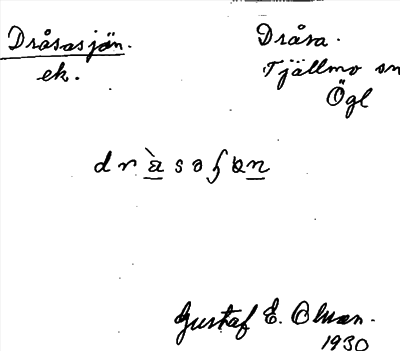 Dråsasjön.
ek.
Dråsa.
Tjällmo sn
Ögl
dràsoʃɵn
Gustaf E. Olman.
1930